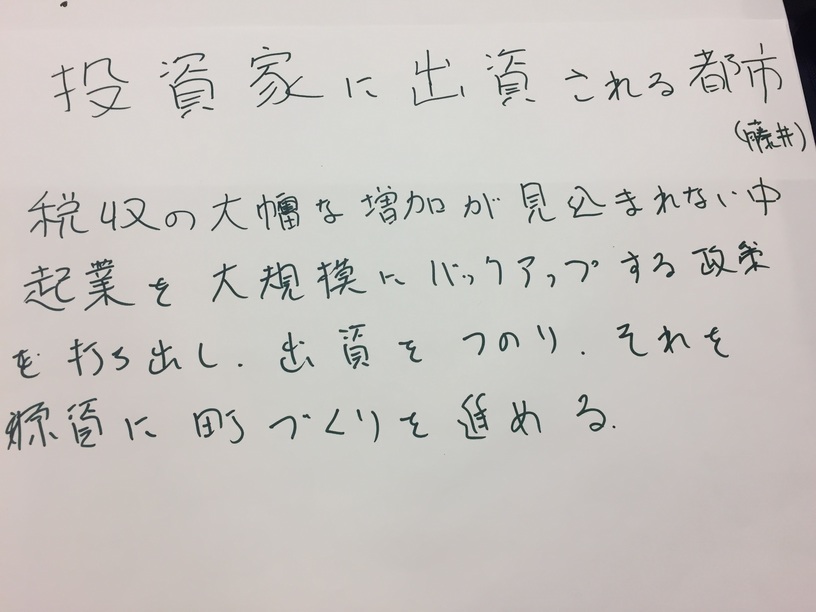 投資家に出資される都市
(藤井)
税収の大幅な増加が見込まれない中
起業を大規模にバックアップする政策
を打ち出し、出資をつのり、それを
源資に町づくりを進める.